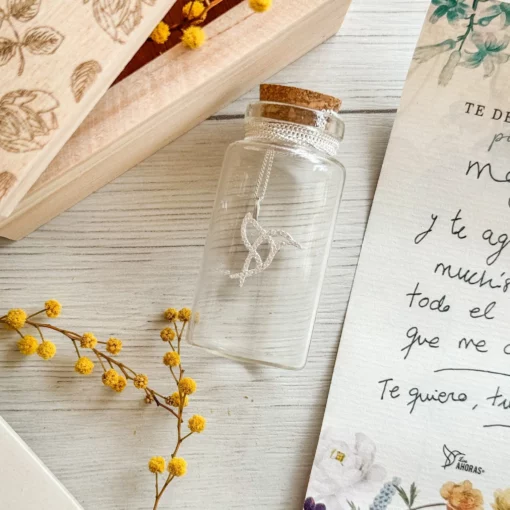 TE DE
me
y te ag
muchís
todo el
que me d
Te quiero, tu
AHORAS